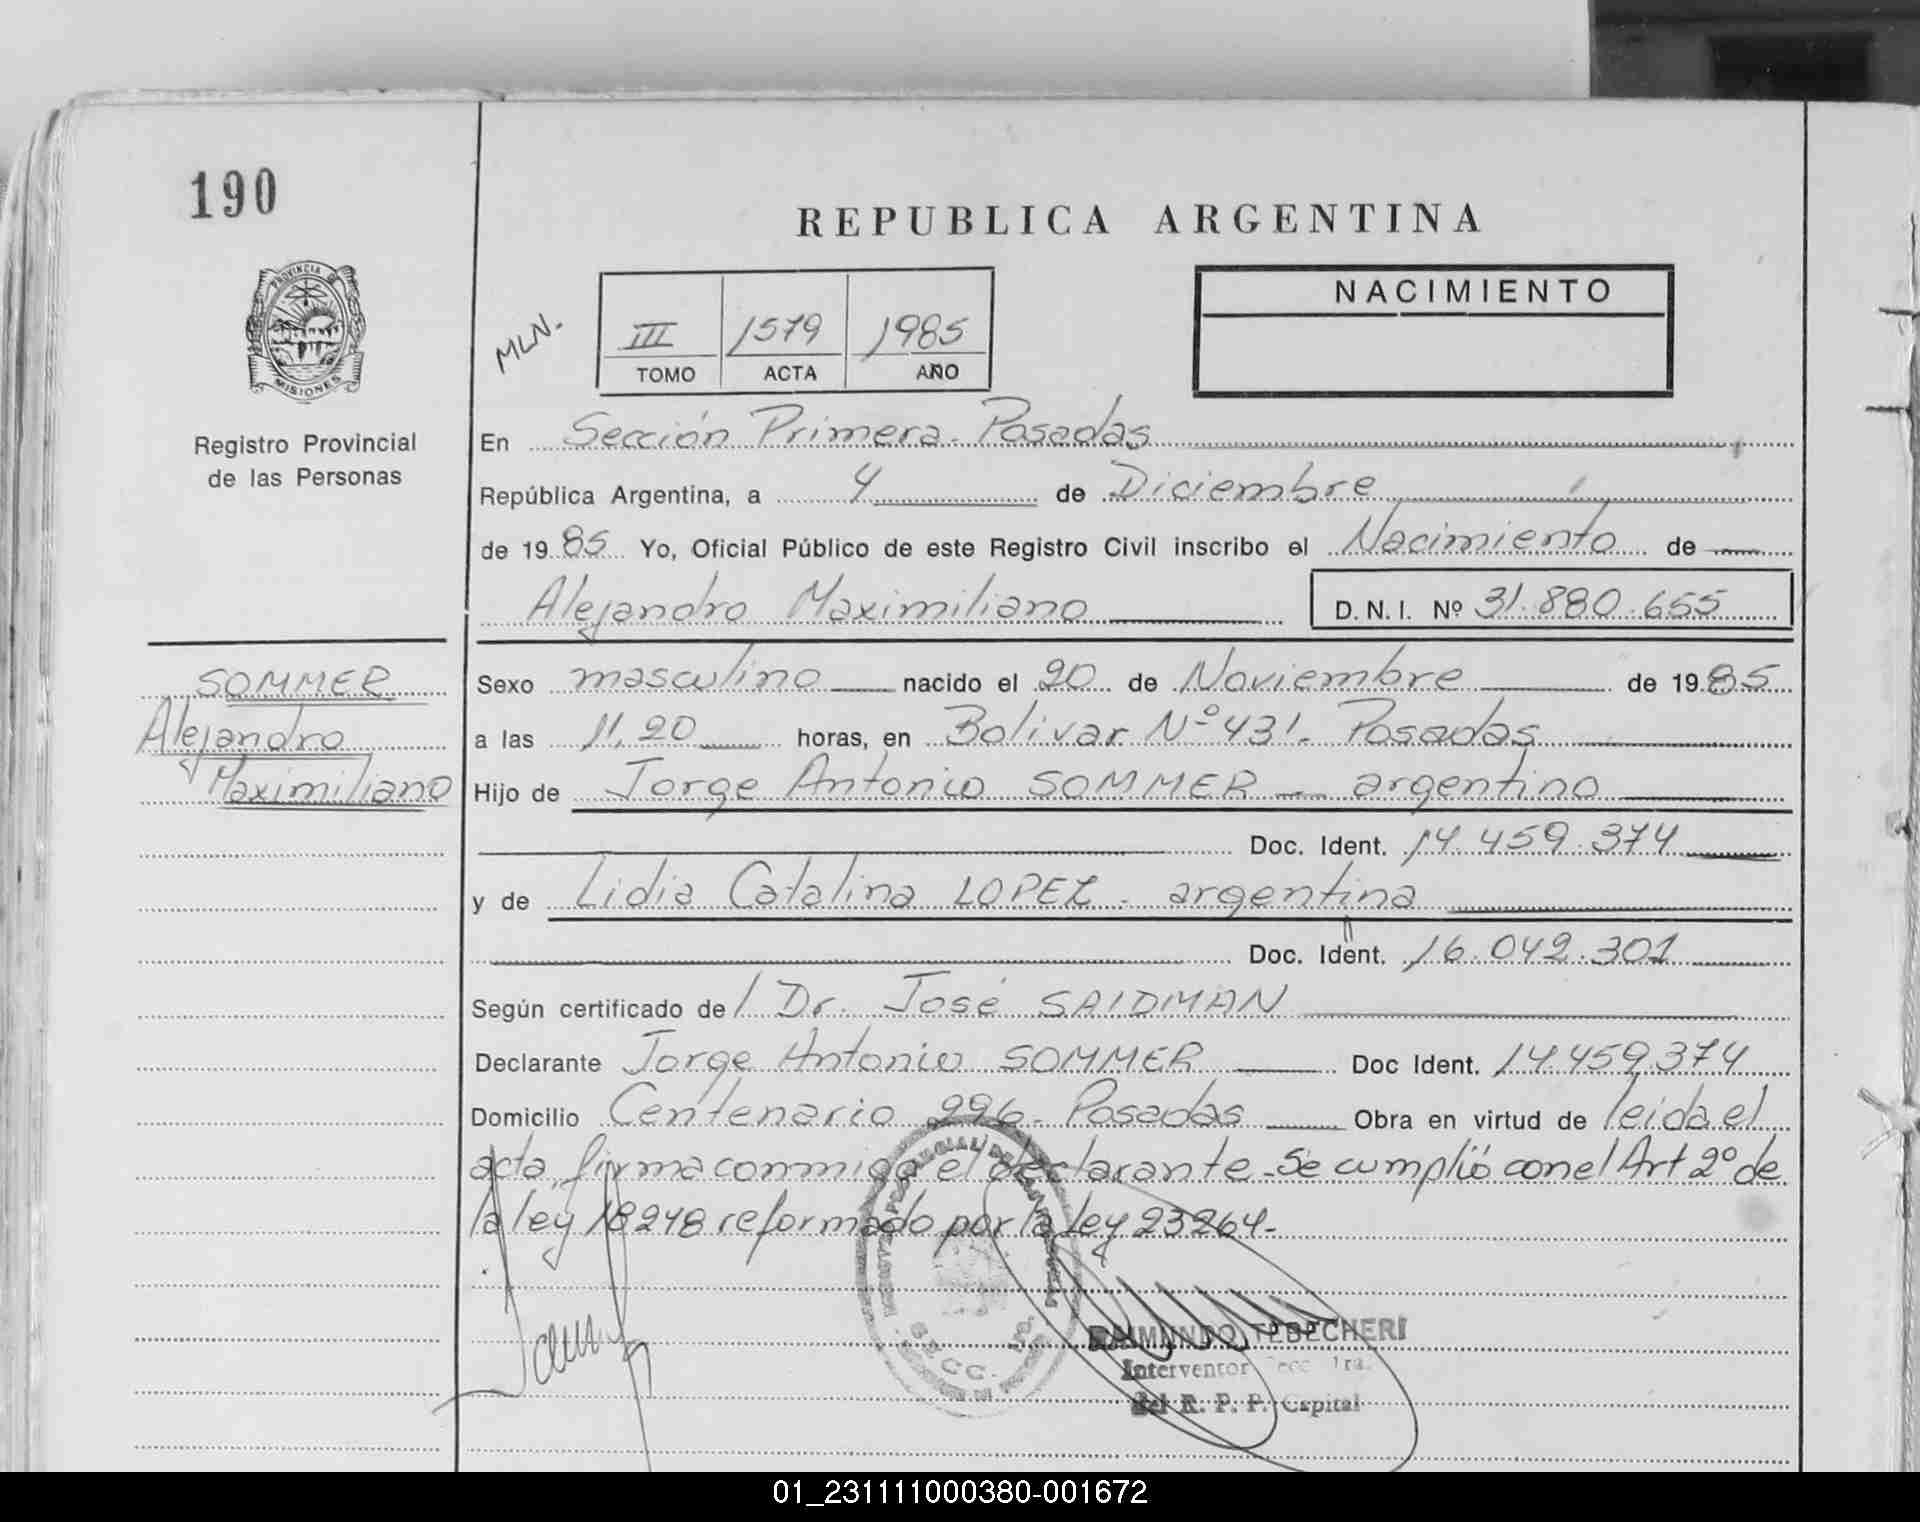 190
REPUBLICA ARGENTINA
PROVINCIA DE
MISIONES
Registro Provincial
de las Personas
MLN.
III 1579 1985
TOMO ACTA AÑO
NACIMIENTO
En Sección Primera - Posadas
República Argentina, a 4 de Diciembre
de 1985 Yo, Oficial Público de este Registro Civil inscribo el Nacimiento de
Alejandro Maximiliano D. N. I. Nº 31.880.655
SOMMER
Alejandro
Maximiliano
Sexo masculino nacido el 20 de Noviembre de 1985
a las 11,20 horas, en Bolivar Nº 431. Posadas
Hijo de Jorge Antonio SOMMER - argentino
Doc. Ident. 14.459.374
y de Lidia Catalina LOPEZ - argentina
Doc. Ident. 16.042.301
Según certificado de Dr. José SAIDMAN
Declarante Jorge Antonio SOMMER Doc Ident. 14.459.374
Domicilio Centenario 996 - Posadas Obra en virtud de leida el
acta, firma conmigo el declarante - Se cumplió con el Art 2º de
la ley 18248 reformado por la ley 23264 -
RAIMUNDO TEBECHERI
Interventor Secc 1ra.
del R. P. P. Capital
SECC.
01_231111000380-001672